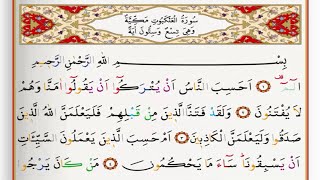 سُورَةُ الْعَنْكَبُوتِ مَكِّيَّةٌ
وَهِيَ تِسْعٌ وَسِتُّونَ آيَةً
بِسْمِ اللَّهِ الرَّحْمَٰنِ الرَّحِيمِ
الٓمٓ ﴿١﴾ اَحَسِبَ النَّاسُ اَنْ يُتْرَكُٓوا اَنْ يَقُولُٓوا اٰمَنَّا وَهُمْ
لَا يُفْتَنُونَ ﴿٢﴾ وَلَقَدْ فَتَنَّا الَّذِينَ مِنْ قَبْلِهِمْ فَلَيَعْلَمَنَّ اللّٰهُ الَّذِينَ
صَدَقُوا وَلَيَعْلَمَنَّ الْكَاذِبِينَ ﴿٣﴾ اَمْ حَسِبَ الَّذِينَ يَعْمَلُونَ السَّيِّـَٔاتِ
اَنْ يَسْبِقُونَا سَٓاءَ مَا يَحْكُمُونَ ﴿٤﴾ مَنْ كَانَ يَرْجُوا